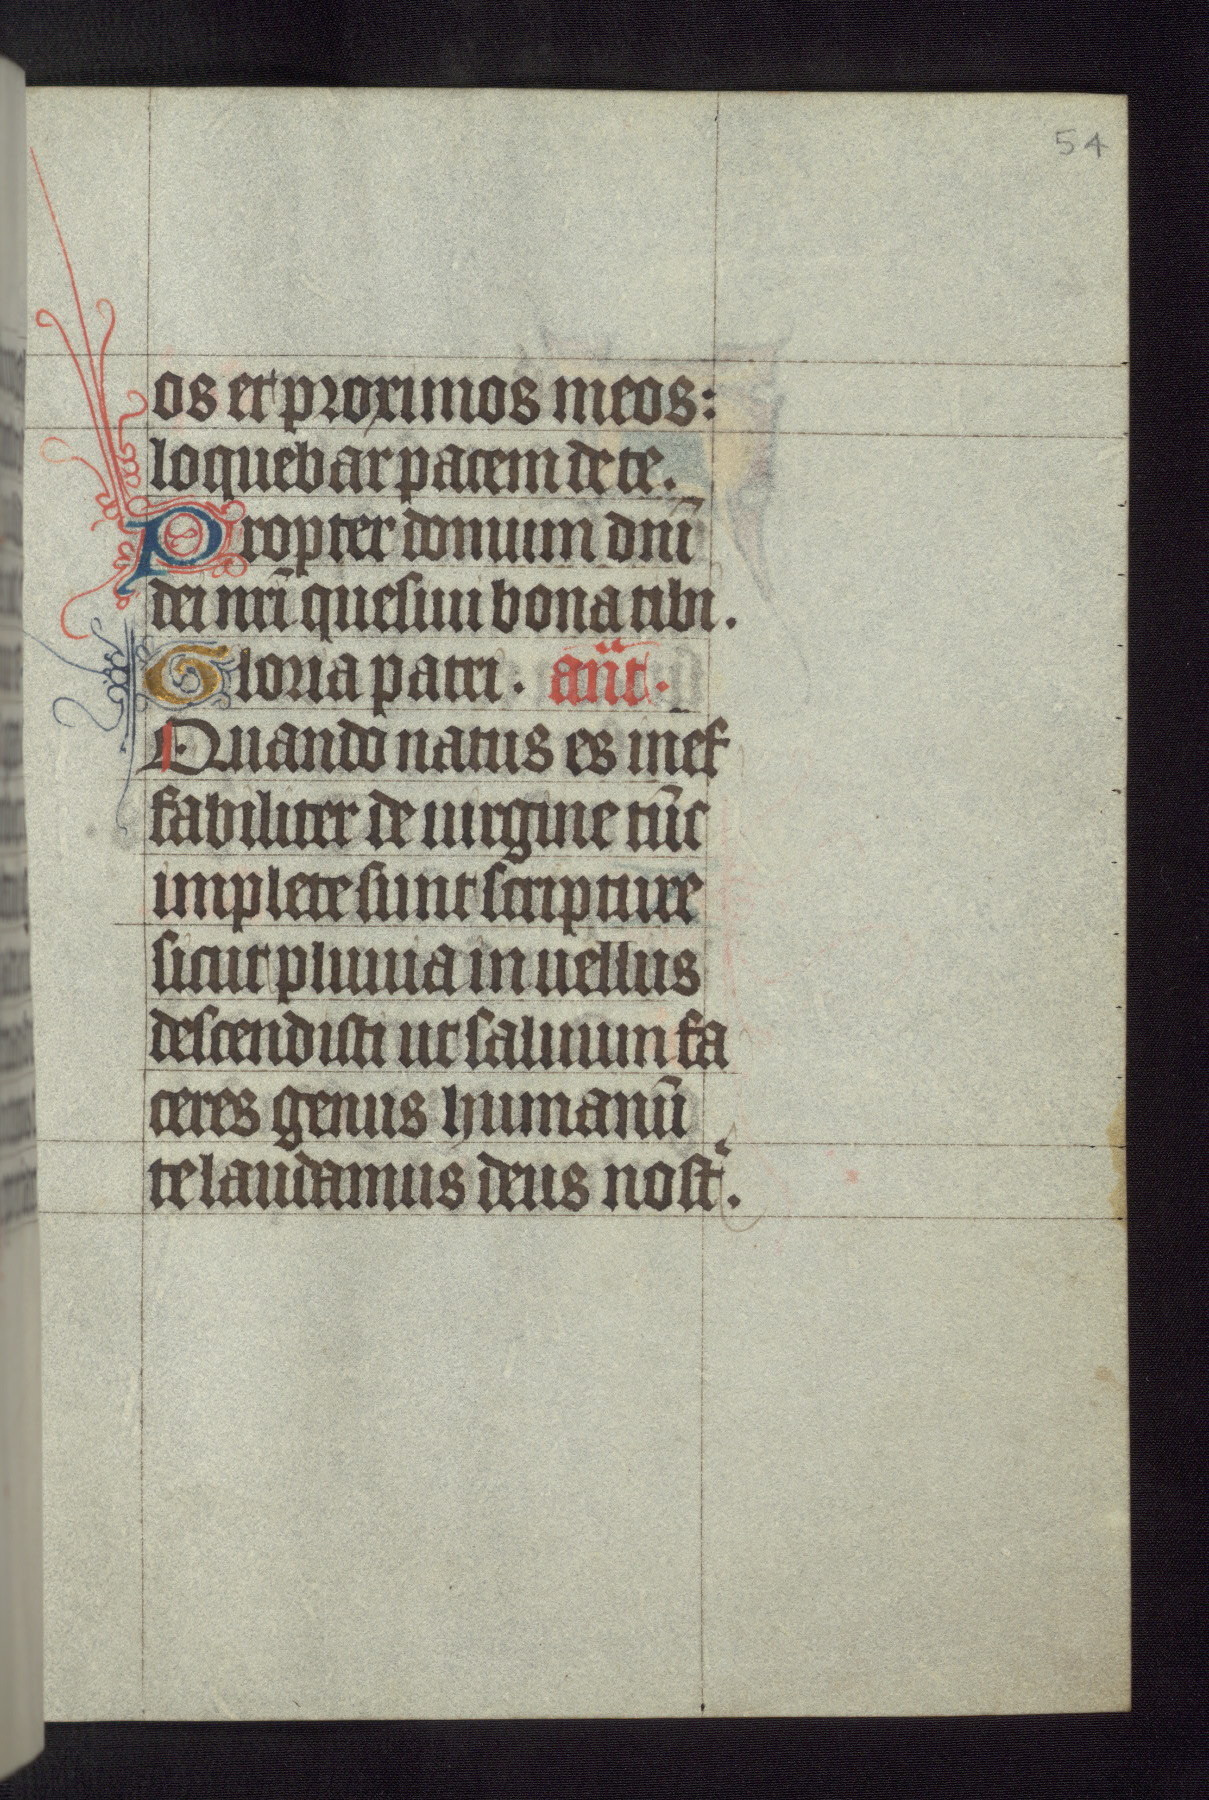 54
os et proximos meos:
loquebar pacem de te.
Propter domum dnī
dei nrī quesiui bona tibi.
Gloria patri. an̄t.
Quando natus es inef
fabiliter de uirgine tūc
implete sunt scripture
sicut pluuia in uellus
descendisti ut saluum fa
ceres genus humanū
te laudamus deus nost̄.